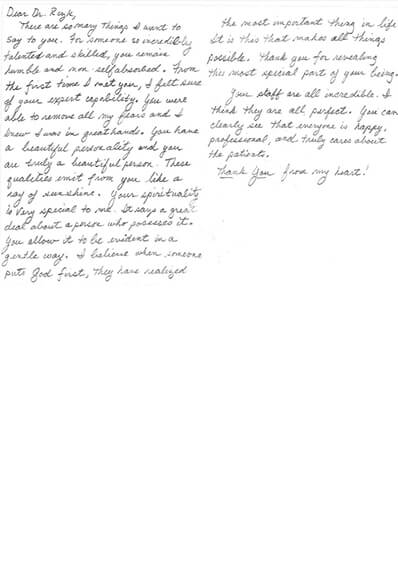 Dear Dr. Rizk,
There are so many things I want to
say to you. For someone so incredibly
talented and skilled, you remain
humble and non self absorbed. From
the first time I met you, I felt sure
of your expert capability. You were
able to remove all my fears and I
knew I was in great hands. You have
a beautiful personality and you
are truly a beautiful person. These
qualities emit from you like a
ray of sunshine. Your spirituality
is very special to me. It says a great
deal about a person who posseses it.
You allow it to be evident in a
gentle way. I believe when someone
puts God first, they have realized
the most important thing in life
It is this that makes all things
possible. Thank you for revealing
this most special part of your being.
Your staff are all incredible. I
think they are all perfect. You can
clearly see that everyone is happy,
professional, and truly cares about
the patients.
Thank You from my heart!